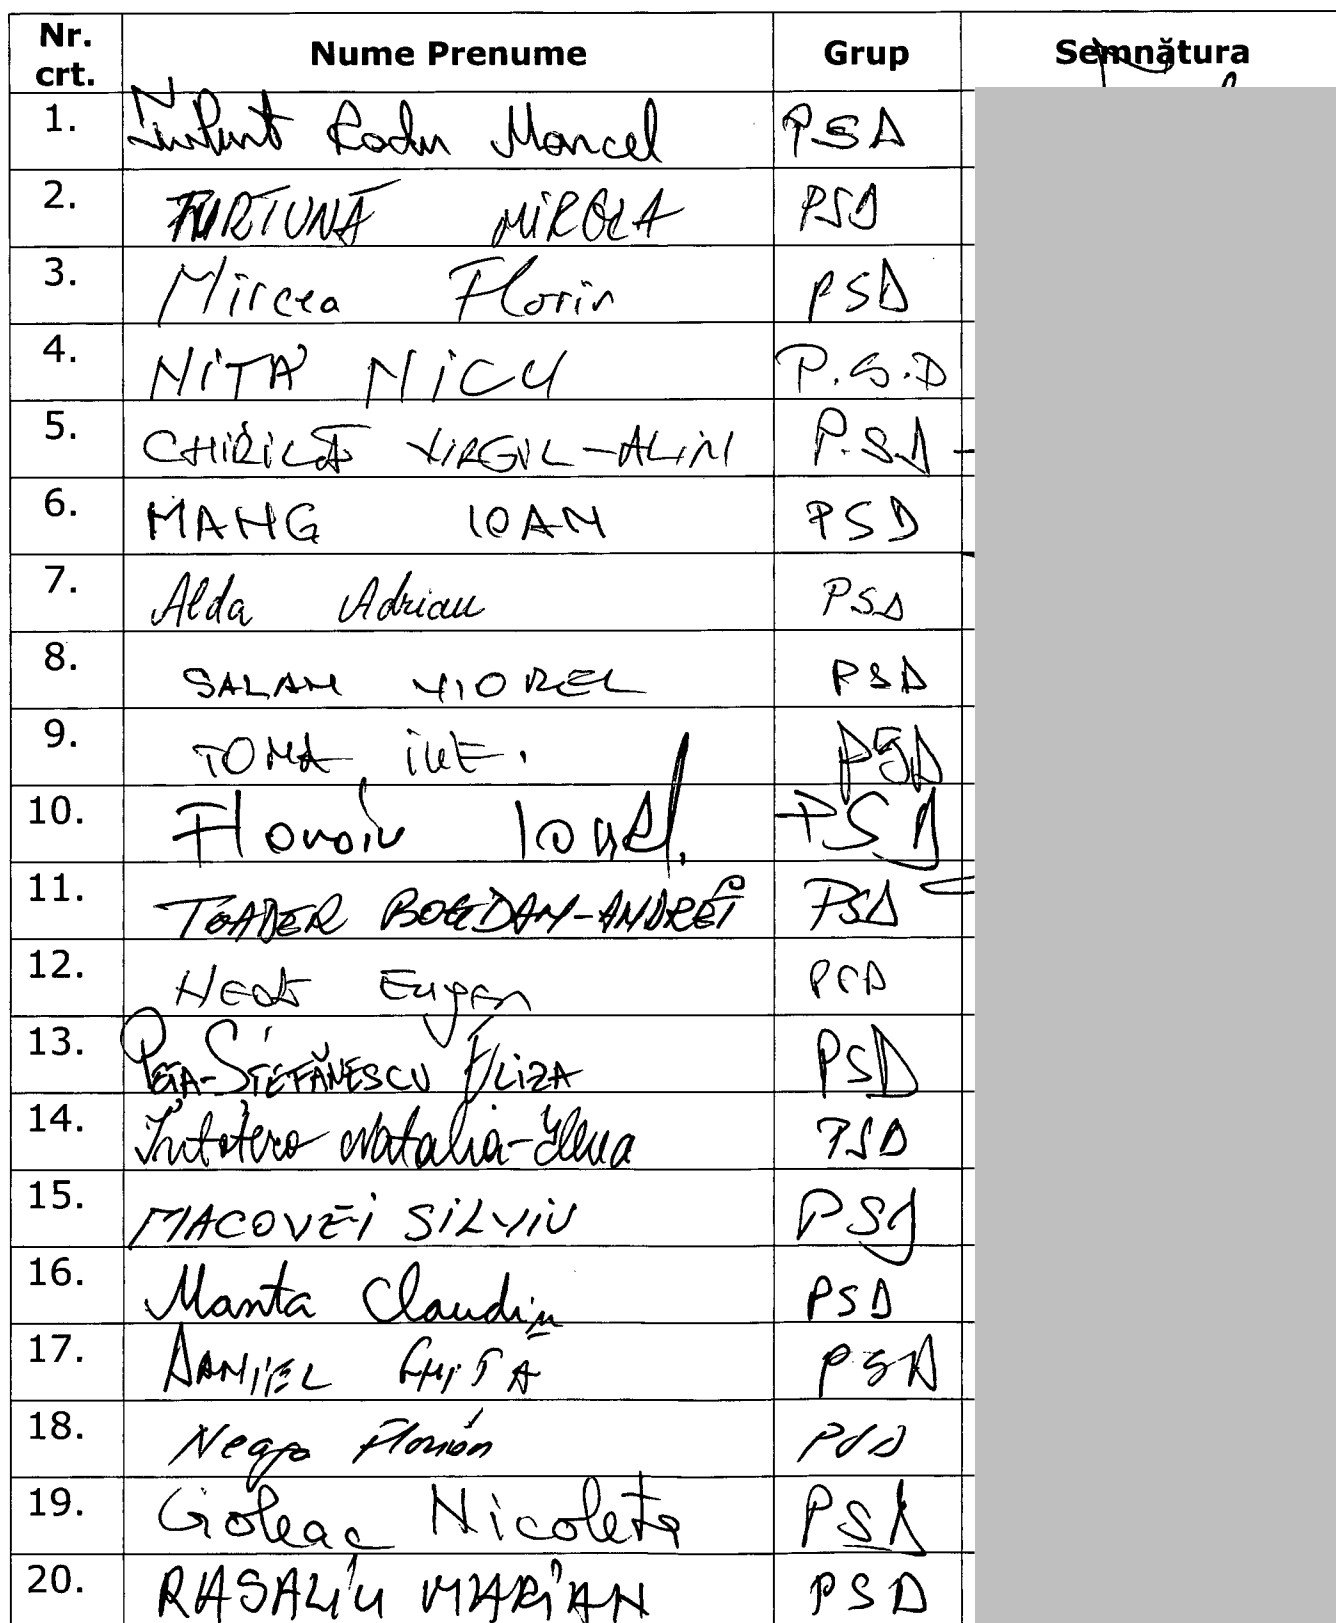 Nr. crt. Nume Prenume Grup Semnătura
1. Radu Marcel PSD
2. FURTUNĂ MIRCEA PSD
3. Mircea Florin PSD
4. NIȚĂ NICU P.S.D
5. CHIRILĂ VIRGIL-ALIN P.S.D
6. MANG IOAN PSD
7. Alda Adrian PSD
8. SALAN VIOREL PSD
9. TOMA ILIE. PSD
10. Floroiu Ionel. PSD
11. TOADER BOGDAN-ANDREI PSD
12. Eugen PSD
13. PEȚA-ȘTEFĂNESCU ELIZA PSD
14. Intotero Natalia-Elena PSD
15. MACOVEI SILVIU PSD
16. Manta Claudiu PSD
17. DANIEL GHIȚĂ PSD
18. Neagu PSD
19. Goleac Nicoleta PSD
20. RASALIU MARIAN PSD